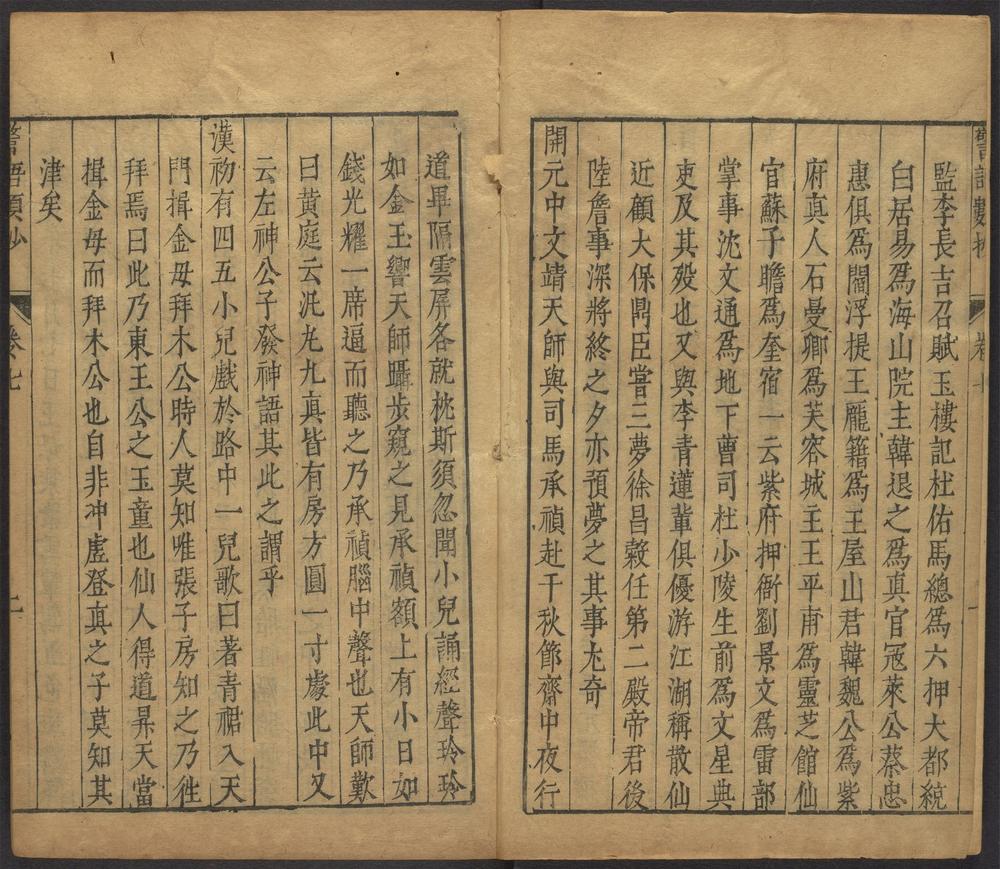 監李長吉召賦玉樓記杜佑馬總爲六押大都統
白居易爲海山院主韓退之爲真官冦萊公蔡忠
惠俱爲閻浮提王龎籍爲王屋山君韓魏公爲紫
府真人石曼卿爲芙容城主王平甫爲靈芝館仙
官蘇子瞻爲奎宿一云紫府押衙劉景文爲雷部
掌事沈文通爲地下曹司杜少陵生前爲文星典
吏及其殁也又與李青蓮軰俱優游江湖稱散仙
近顧大保鼎臣嘗三夢徐昌穀任第二殿帝君後
陸詹事深將終之夕亦預夢之其事尤奇
開元中文靖天師與司馬承禎赴千秋節齋中夜行
道畢隔雲屏各就枕斯須忽聞小兒誦經聲玲玲
如金玉響天師躡步窺之見承禎額上有小日如
錢光耀一席逼而聽之乃承禎腦中聲也天師歎
曰黃庭云泥丸九真皆有房方圓一寸處此中又
云左神公子發神語其此之謂乎
漢初有四五小兒戲於路中一兒歌曰著青裙入天
門揖金母拜木公時人莫知唯張子房知之乃徃
拜焉曰此乃東王公之玉童也仙人得道昇天當
揖金母而拜木公也自非冲虛登真之子莫知其
津矣
卷七